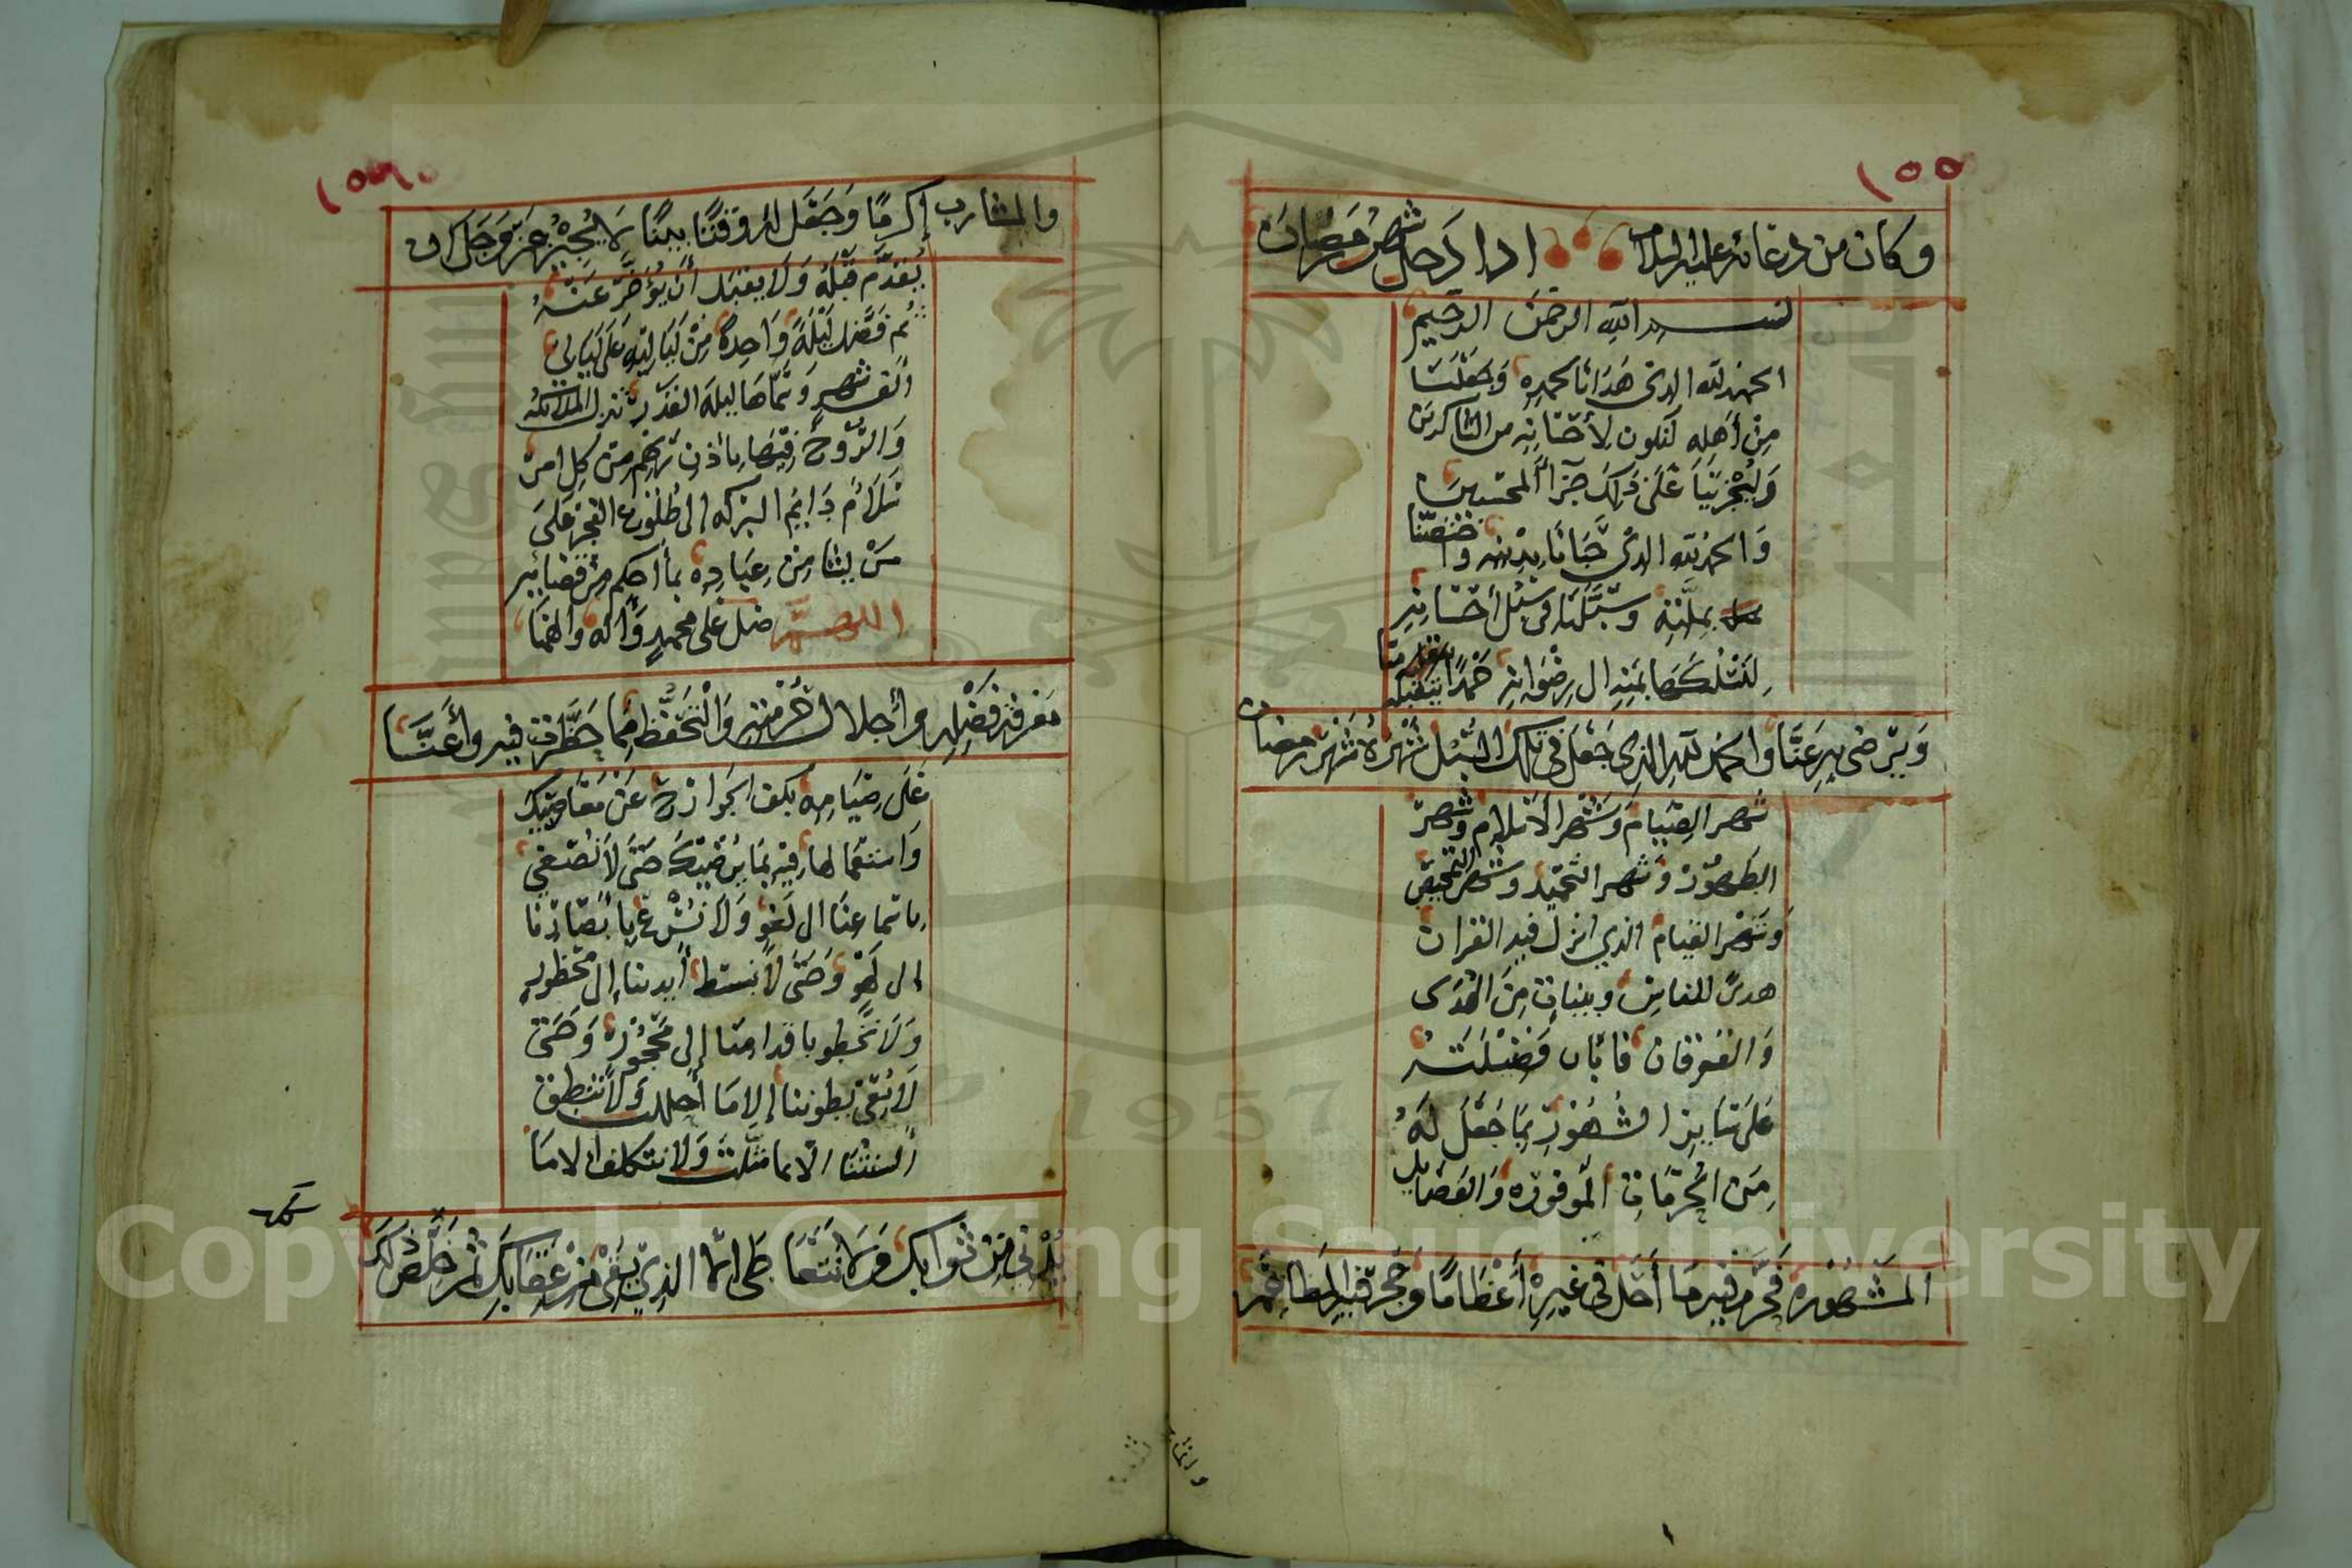 ١٥٥
وكان من دعائه عليه السلام اذا دخل شهر رمضان
بسم الله الرحمن الرحيم
الحمد لله الذي هدانا لحمده وجعلنا
من أهله لنكون لأحسانه من الشاكرين
وليجزينا على ذلك جزآ المحسنين
والحمد لله الذي حبانا بدينه واختصنا
بملته وسبلنا في سبل احسانه
لنسلكها بمنه الى رضوانه حمدا يتقبله منا
ويرضى به عنا والحمد لله الذي جعل في تلك السبل شهره شهر رمضان
شهر الصيام وشهر الاسلام وشهر
الطهور وشهر التمحيص
وشهر القيام الذي انزل فيه القران
هدى للناس وبينات من الهدى
والفرقان فابان فضيلته
على سائر الشهور بما جعل له
من الحرمات الموفوره والفضايل
المشهوره فحرم فيه ما أحل في غيره أعظاما وحجر فيه المطاعم
والمشارب
والمشارب إكراما وجعل له وقتا بينا لا يجيز عز وجل ان
يقدم قبله ولا يقبل أن يؤخر عنه
ثم فضل ليلة واحدة من لياليه على ليالي
ألف شهر وسماها ليلة القدر تنزل الملائكه
والروح فيها باذن ربهم من كل امر
سلام دايم البركه الى طلوع الفجر على
من يشا من عباده بما أحكم من قضايه
اللهم صل على محمد وآله والهمنا
معرفة فضله وأجلال حرمته والتحفظ مما حظرت فيه وأعنا
على صيامه بكف الجوارح عن معاصيك
واستعمالها فيه بما يرضيك حتى لا نصغي
باسماعنا الى لغو ولا نسرع بابصارنا
إلى لهو وحتى لا نبسط أيدينا إلى محظور
ولا نخطو باقدامنا إلى محجور وحتى
لا تعي بطوننا إلا ما أحللت ولا تنطق
ألسنتنا الا بما مثلت ولا نتكلف الا ما
يدني من ثوابك ولا نتعاطى الا الذي يقي من عقابك ثم خلص ذلك